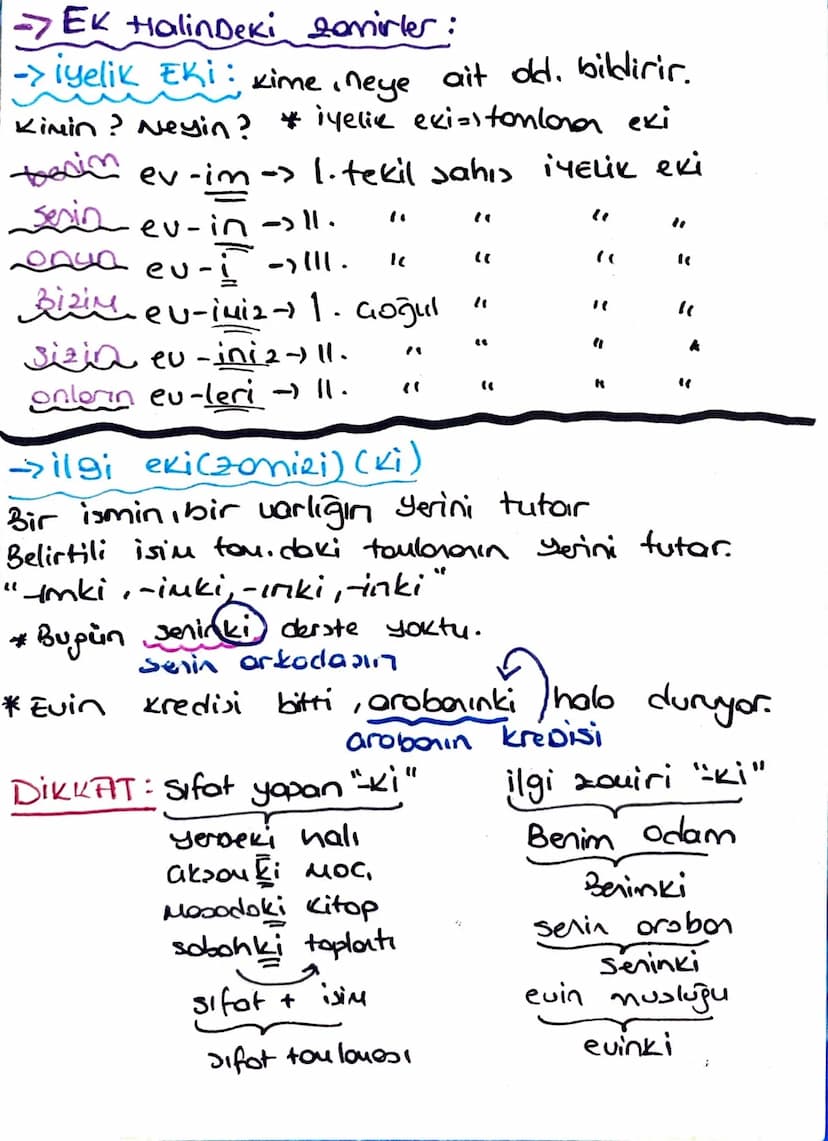 -> EK Halindeki zamirler :
-> iyelik EKi : kime, neye ait old. bildirir.
Kimin ? Neyin ? * iyelik eki => tamlanan eki
benim ev-im -> I. tekil şahıs iYELiK eki
senin ev-in -> II. " " " "
onun ev-i -> III. " " " "
Bizim ev-imiz -> I. çoğul " " "
sizin ev-iniz -> II. " " " "
onların ev-leri -> II. " " " "
-> ilgi eki (zamiri) (ki)
Bir ismin, bir varlığın yerini tutar
Belirtili isim tam. daki tamlananın yerini tutar.
"-ımki, -imki, -ınki, -inki"
* Bugün seninki derste yoktu.
senin arkadaşın
* Evin kredisi bitti, arabanınki hala duruyor.
arabanın kreDiSi
DiKKAT : sıfat yapan "-ki" ilgi zamiri "-ki"
yerdeki halı Benim odam
akşamki maç Benimki
Masadaki kitap senin araban
sabahki toplantı seninki
sıfat + isim evin musluğu
sıfat tamlaması evinki